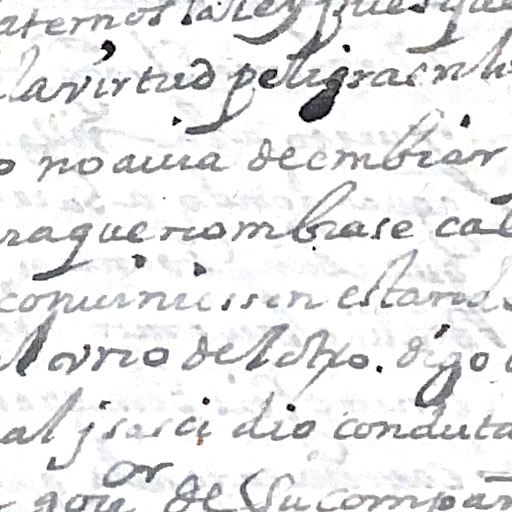 aternos la ley pues que
la virtud peligra en l
o no auia de embiar
ra que nombrase cab
conuiniessen estand
l vno del otro. digo
al j se sci dio conduta
or
gou de su compañ